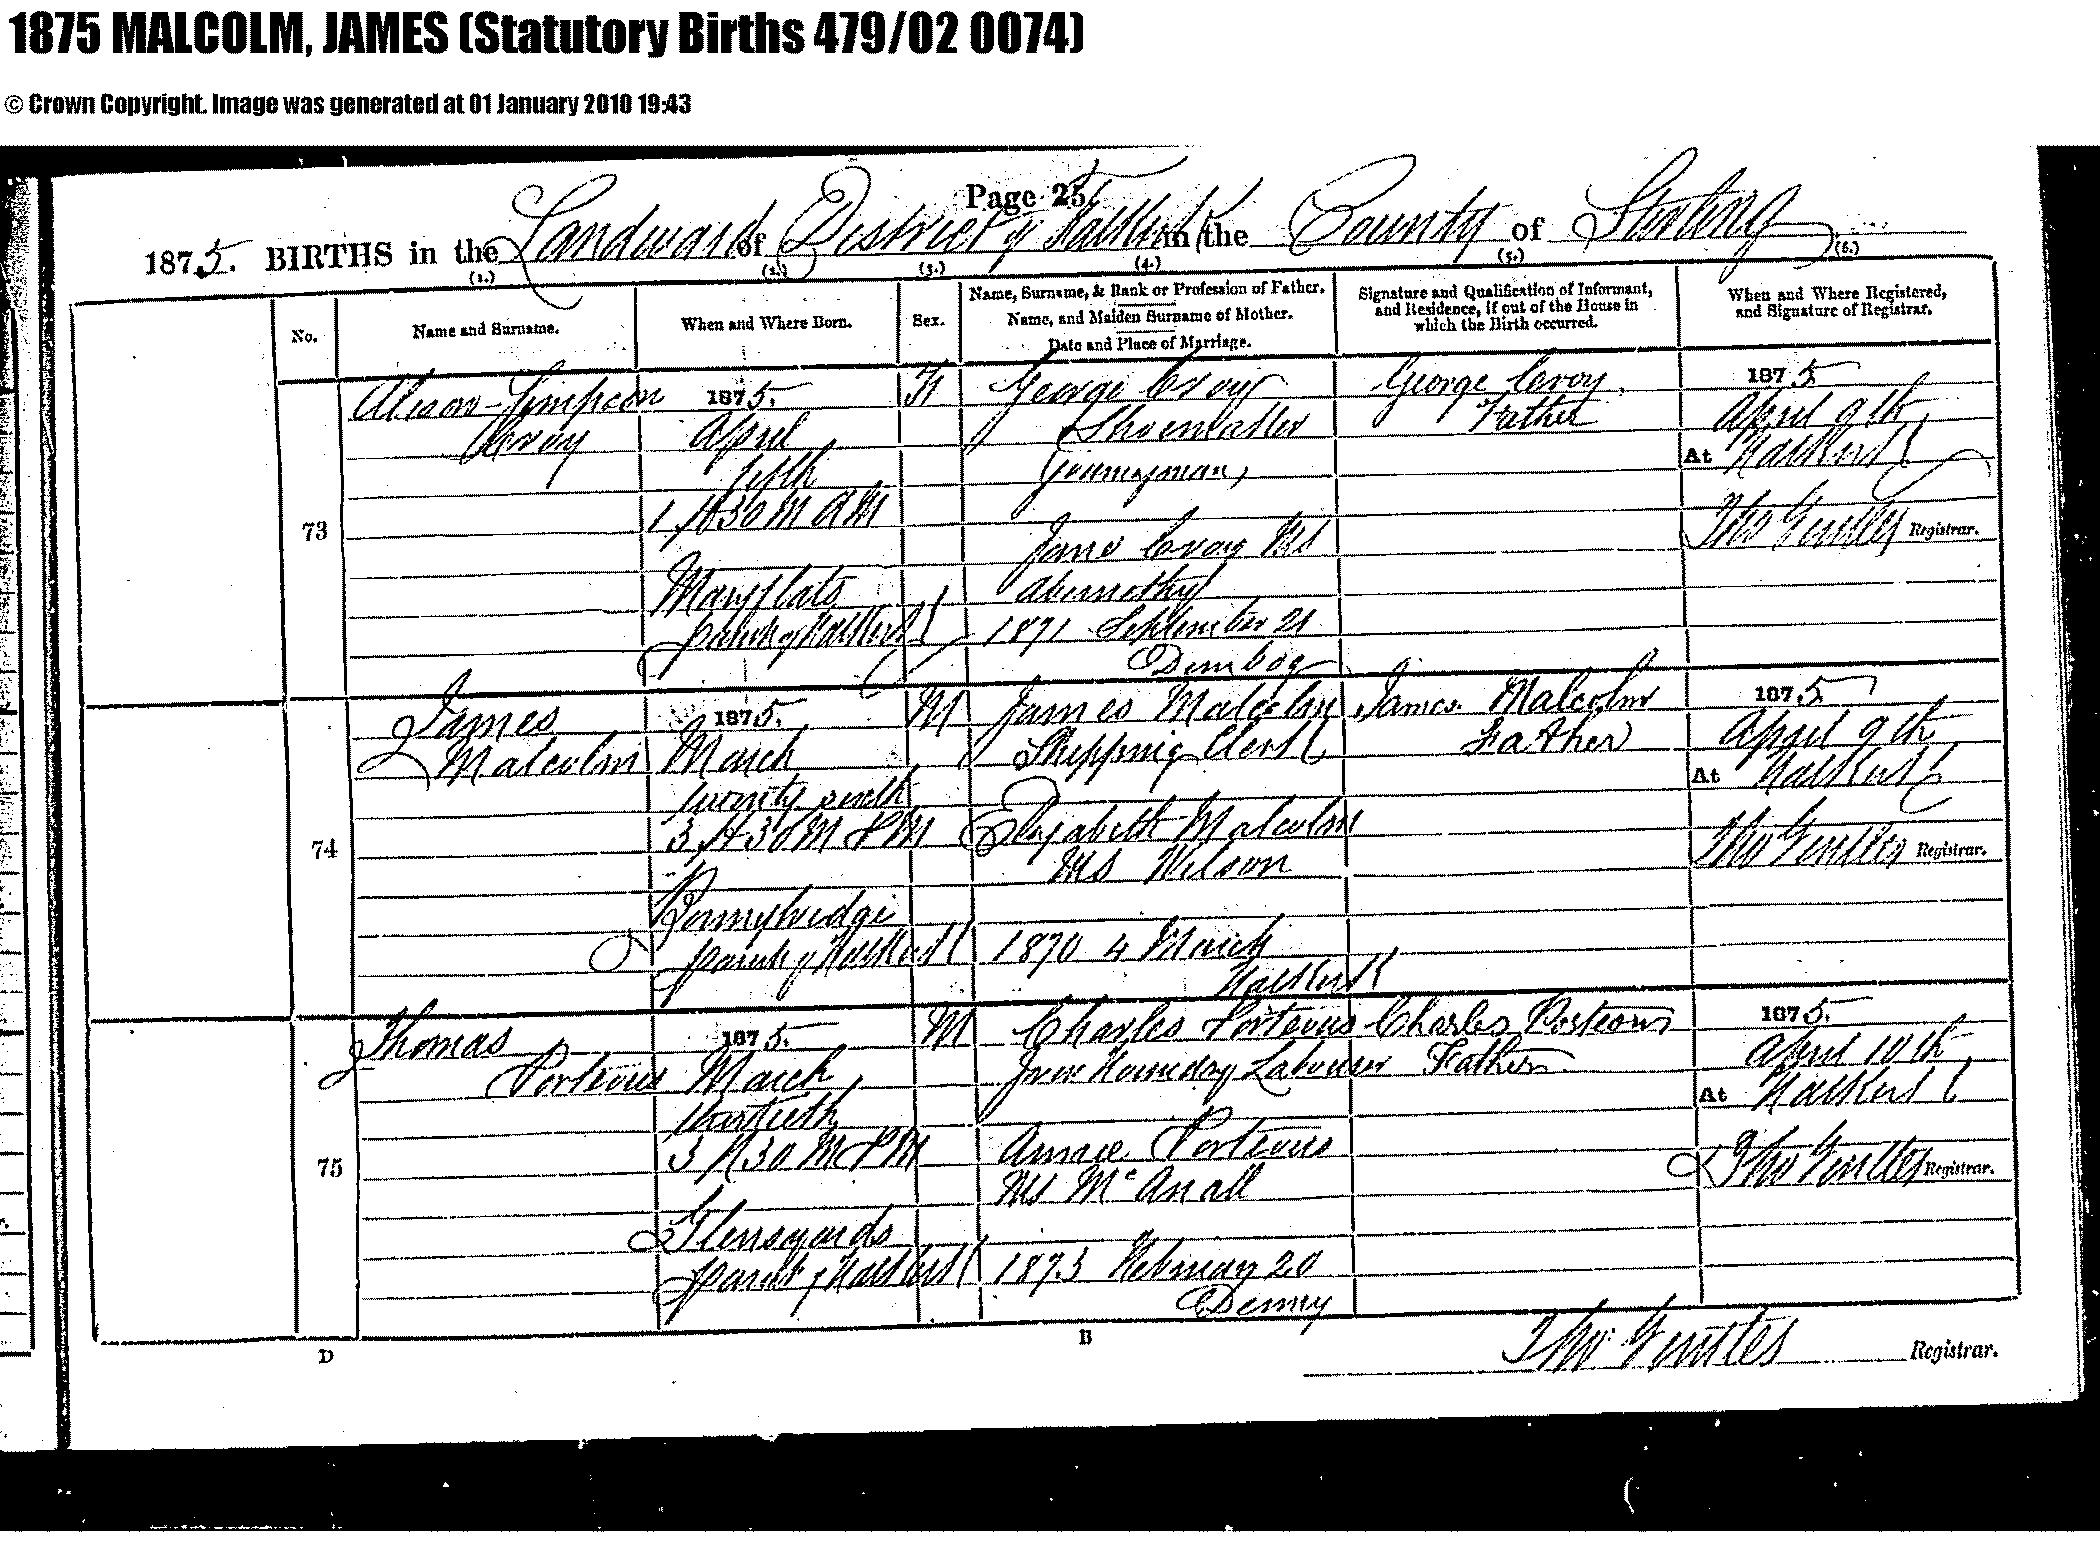 1875 MALCOLM, JAMES (Statutory Births 479/02 0074)
© Crown Copyright. Image was generated at 01 January 2010 19:43
Page 25.
1875. BIRTHS in the Landward of District of Falkirk in the County of Stirling
(1.) (2.) (3.) (4.) (5.) (6.)
No.
Name and Surname.
When and Where Born.
Sex.
Name, Surname, & Rank or Profession of Father.
Name, and Maiden Surname of Mother.
Date and Place of Marriage.
Signature and Qualification of Informant,
and Residence, if out of the House in
which the Birth occurred.
When and Where Registered,
and Signature of Registrar.
73
Alison Simpson
Croy
1875.
April
fifth
1 H 30 M AM
Mayflats
parish of Falkirk
F
George Croy
Journeyman,
Jane Croy MS
Abernethy
1871 September 21
George Croy.
Father
1875
April 9th
At Falkirk
Thos Gentles Registrar.
74
James
Malcolm
1875.
March
3 H 30 M PM
Bonnybridge
parish of Falkirk
M
James Malcolm
Shipping Clerk
Elizabeth Malcolm
MS Wilson
1870 4 March
Falkirk
James Malcolm
Father
1875
April 9th
At Falkirk
Thos Gentles Registrar.
75
Thomas
Porteous
1875.
March
thirtieth
3 H 30 M PM
Glenyards
parish of Falkirk
M
Charles Porteous
Iron Foundry Labourer
Annie Porteous
MS McAnall
1873 February 20
Denny
Charles Porteous
Father
1875.
April 10th
At Falkirk
Thos Gentles Registrar.
D
B
Thos Gentles Registrar.